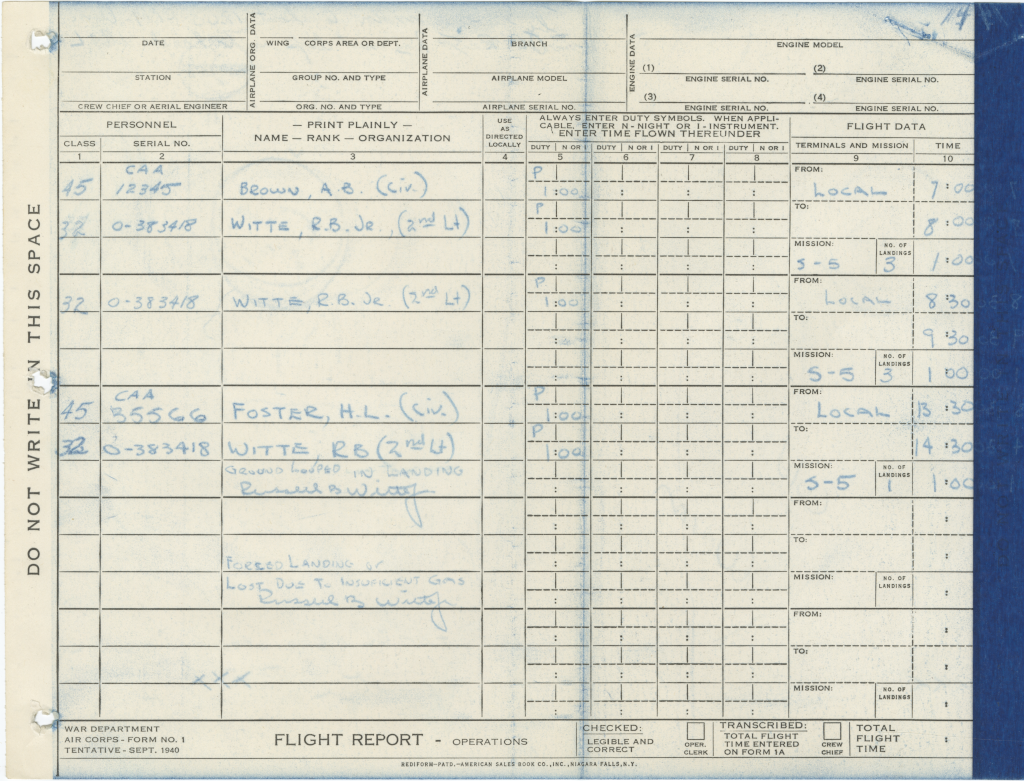 DO NOT WRITE IN THIS SPACE
DATE
STATION
CREW CHIEF OR AERIAL ENGINEER
AIRPLANE ORG. DATA
WING CORPS AREA OR DEPT.
GROUP NO. AND TYPE
ORG. NO. AND TYPE
AIRPLANE DATA
BRANCH
AIRPLANE MODEL
AIRPLANE SERIAL NO.
ENGINE DATA
ENGINE MODEL
(1) (2)
ENGINE SERIAL NO. ENGINE SERIAL NO.
(3) (4)
ENGINE SERIAL NO. ENGINE SERIAL NO.
PERSONNEL
CLASS SERIAL NO.
— PRINT PLAINLY —
NAME — RANK — ORGANIZATION
USE
AS
DIRECTED
LOCALLY
ALWAYS ENTER DUTY SYMBOLS. WHEN APPLI-
CABLE, ENTER N - NIGHT OR I - INSTRUMENT.
ENTER TIME FLOWN THEREUNDER
DUTY N OR I DUTY N OR I DUTY N OR I DUTY N OR I
FLIGHT DATA
TERMINALS AND MISSION TIME
1 2 3 4 5 6 7 8 9 10
CAA P FROM:
45 12345 BROWN, A.B. (CIV.) 1:00 LOCAL 7:00
P TO:
32 0-383418 WITTE, R.B. JR., (2nd Lt) 1:00 8:00
MISSION: NO. OF LANDINGS
S-5 3 1:00
P FROM:
32 0-383418 WITTE, R.B. JR (2nd Lt) 1:00 LOCAL 8:30
TO:
9:30
MISSION: NO. OF LANDINGS
S-5 3 1:00
CAA P FROM:
45 35566 FOSTER, H.L. (CIV.) 1:00 LOCAL 13:30
P TO:
32 0-383418 WITTE, RB (2nd Lt) 1:00 14:30
GROUND LOOPED IN LANDING MISSION: NO. OF LANDINGS
Russell B Witte Jr S-5 1 1:00
FROM:
TO:
FORCED LANDING or
LOST DUE TO INSUFFICIENT GAS MISSION: NO. OF LANDINGS
Russell B Witte Jr
FROM:
TO:
XXX
MISSION: NO. OF LANDINGS
WAR DEPARTMENT
AIR CORPS - FORM NO. 1
TENTATIVE - SEPT. 1940
FLIGHT REPORT - OPERATIONS
CHECKED:
LEGIBLE AND
CORRECT
OPER.
CLERK
TRANSCRIBED:
TOTAL FLIGHT
TIME ENTERED
ON FORM 1A
CREW
CHIEF
TOTAL
FLIGHT
TIME
REDIFORM-PATD.-AMERICAN SALES BOOK CO., INC., NIAGARA FALLS, N.Y.